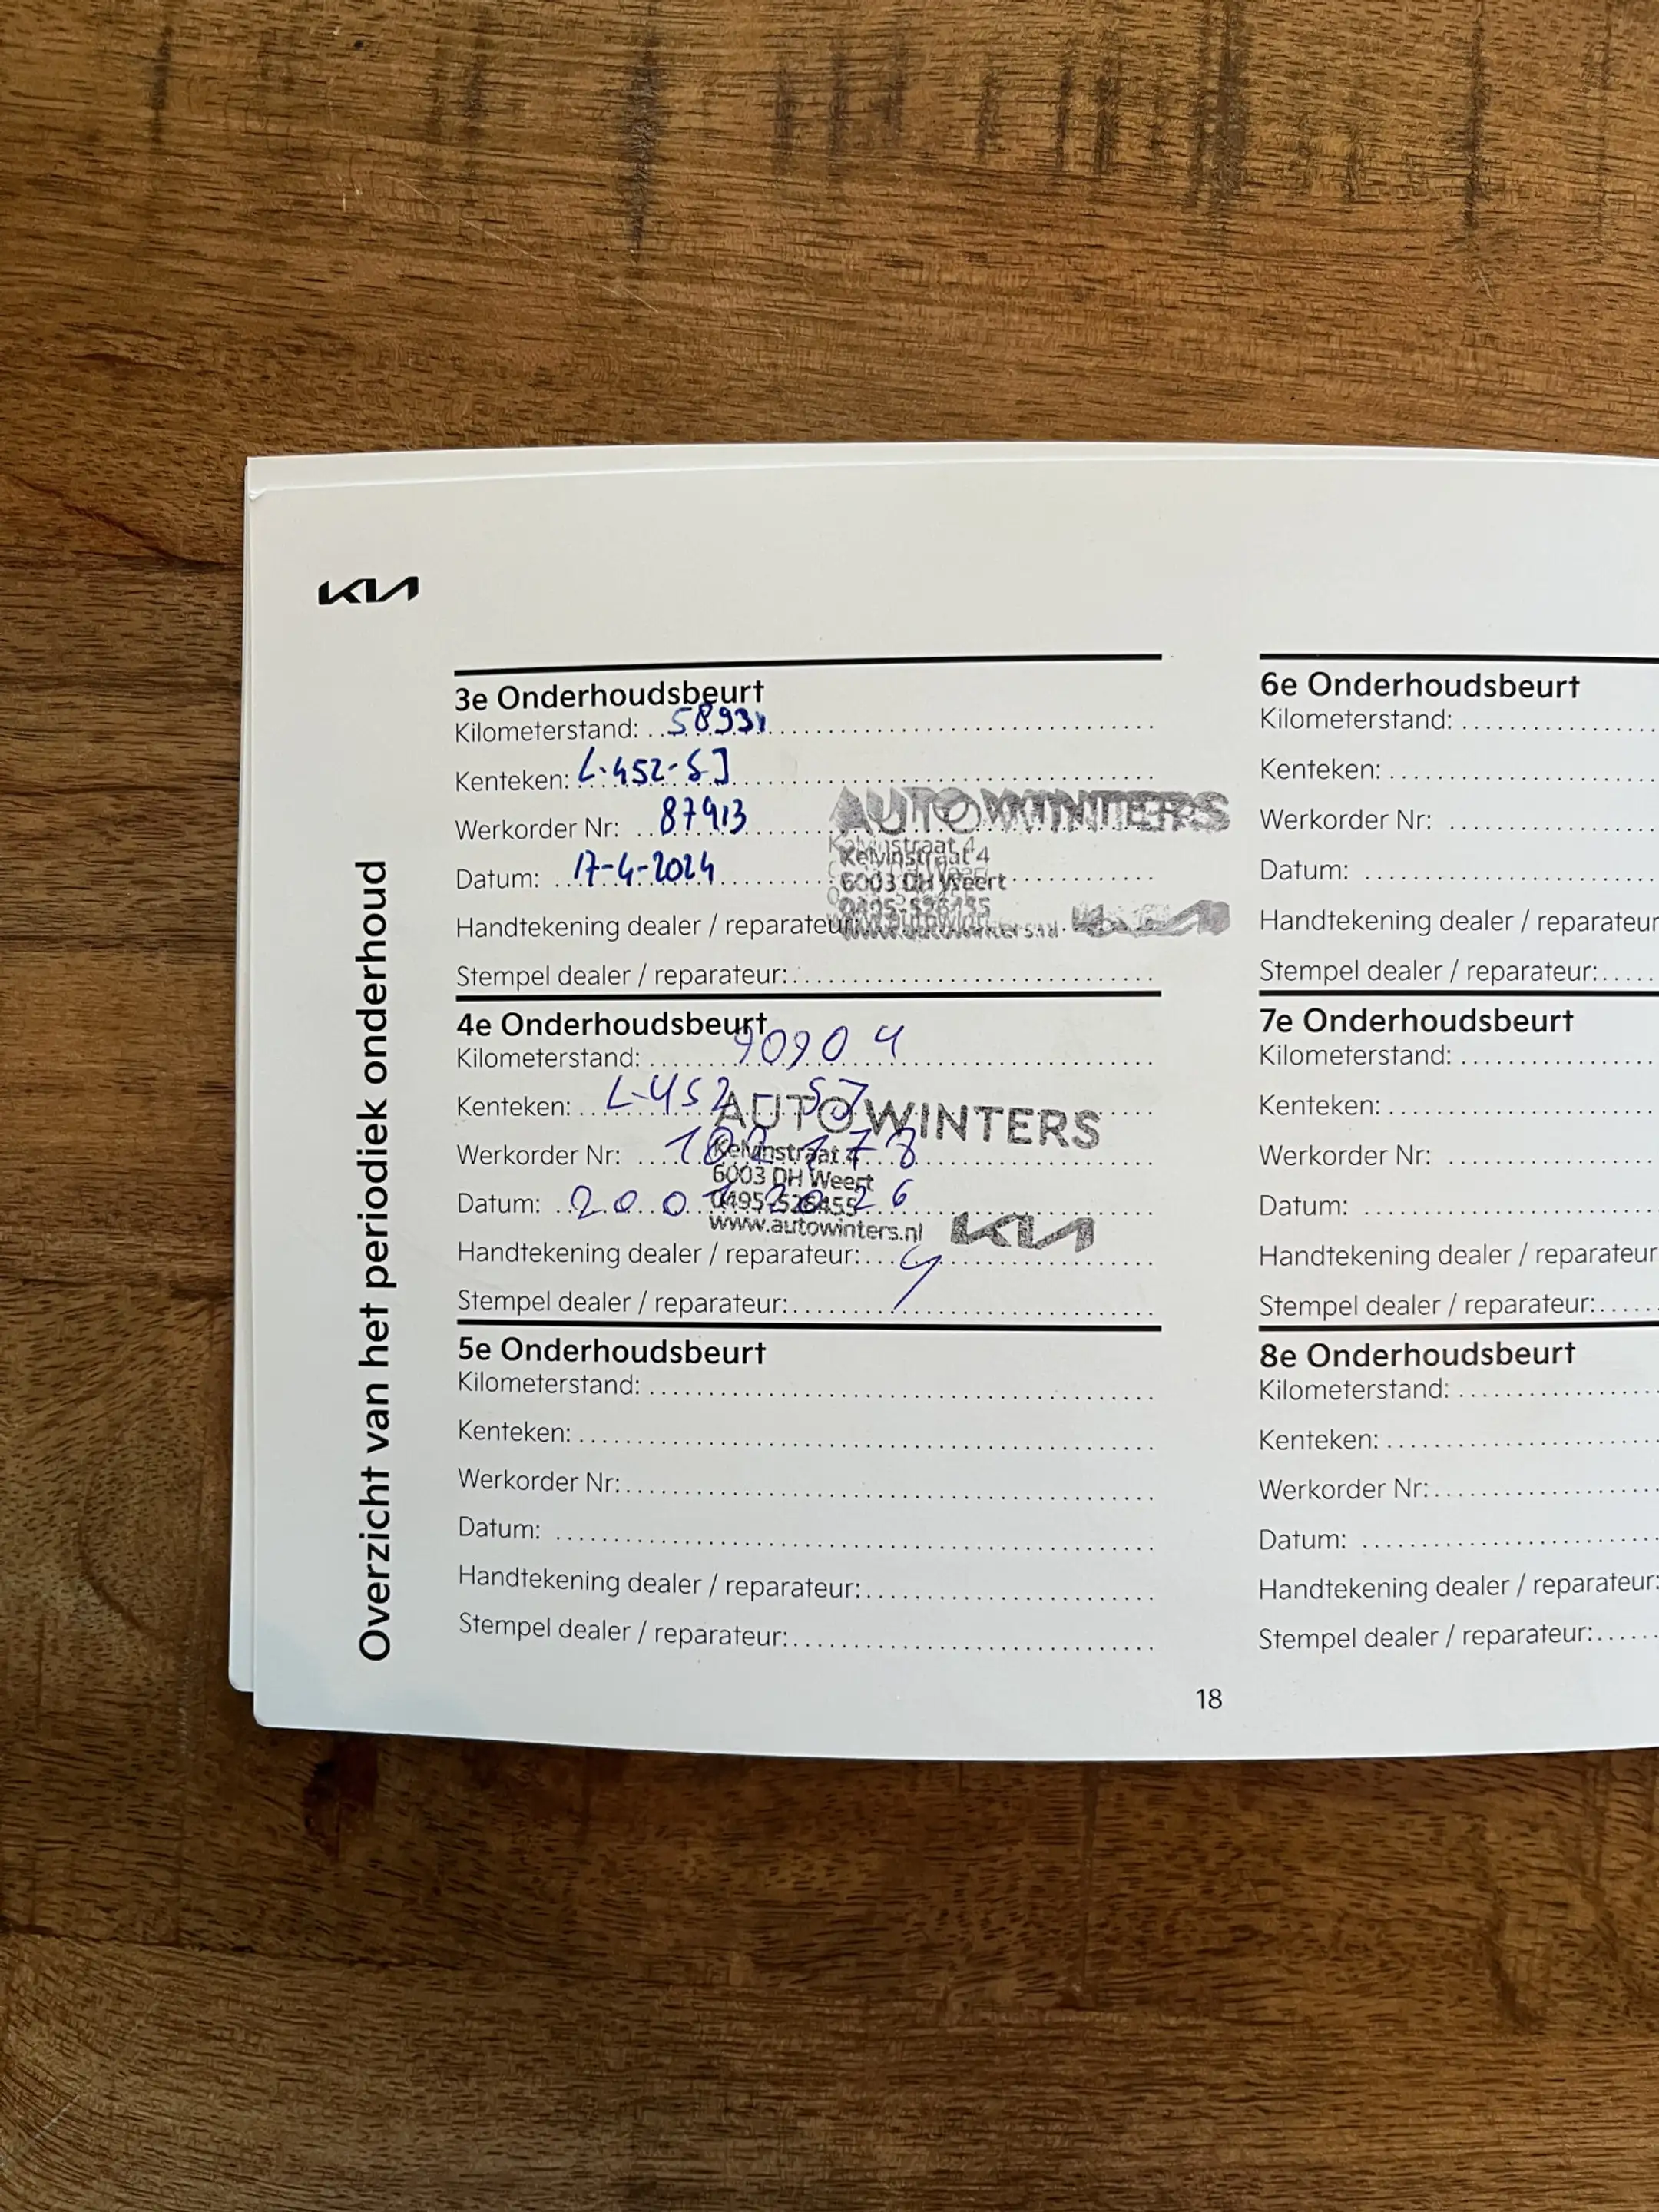 KIA
Overzicht van het periodiek onderhoud
3e Onderhoudsbeurt
Kilometerstand: 58931
Kenteken: L-452-SJ
Werkorder Nr: 87913
Datum: 17-4-2024
Handtekening dealer / reparateur:
Stempel dealer / reparateur:
AUTO WINTERS
Kelvinstraat 4
6003 DH Weert
0495-526455
www.autowinters.nl KIA
4e Onderhoudsbeurt
Kilometerstand: 90904
Kenteken: L-452-SJ
Werkorder Nr:
Datum:
Handtekening dealer / reparateur:
Stempel dealer / reparateur:
AUTO WINTERS
Kelvinstraat 4
6003 DH Weert
0495-526455
www.autowinters.nl KIA
5e Onderhoudsbeurt
Kilometerstand:
Kenteken:
Werkorder Nr:
Datum:
Handtekening dealer / reparateur:
Stempel dealer / reparateur:
6e Onderhoudsbeurt
Kilometerstand:
Kenteken:
Werkorder Nr:
Datum:
Handtekening dealer / reparateur
Stempel dealer / reparateur:
7e Onderhoudsbeurt
Kilometerstand:
Kenteken:
Werkorder Nr:
Datum:
Handtekening dealer / reparateur
Stempel dealer / reparateur:
8e Onderhoudsbeurt
Kilometerstand:
Kenteken:
Werkorder Nr:
Datum:
Handtekening dealer / reparateur:
Stempel dealer / reparateur:
18